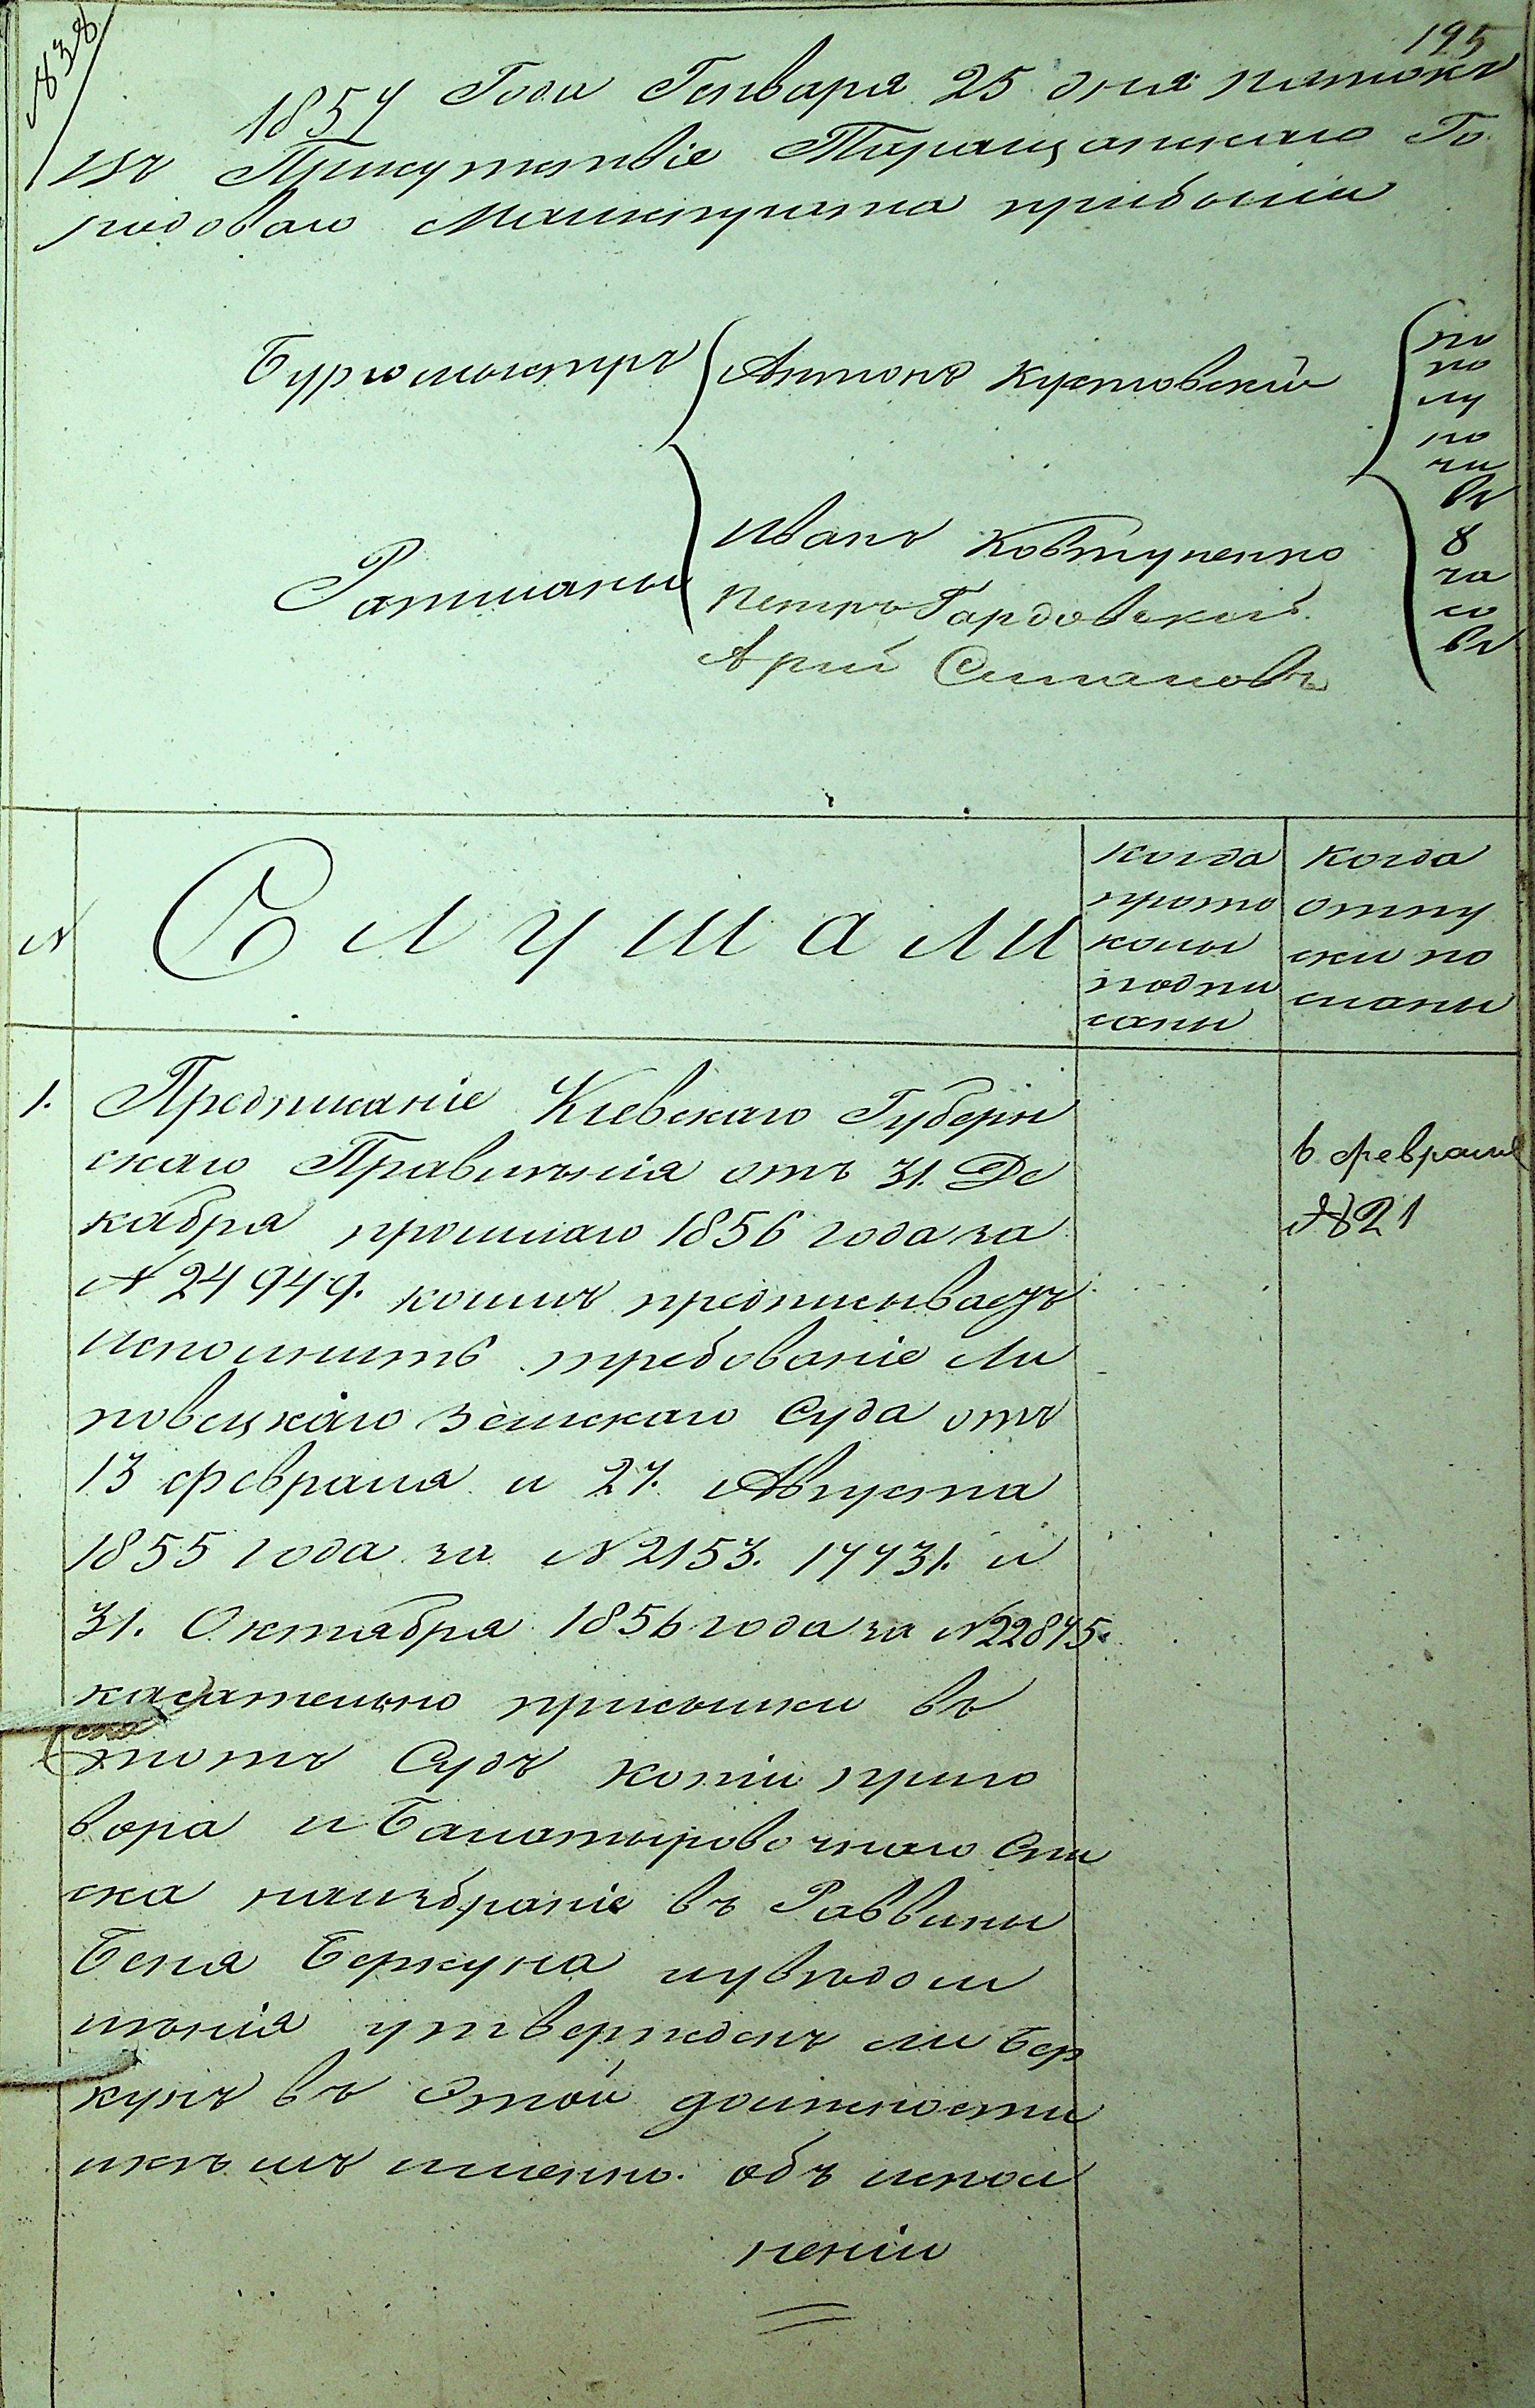 195
№ 38
1857 Года Генваря 25 дня пятокъ
въ Присутствіе Таращанскаго Го
родоваго Магистрата прибыли
Бургомистръ Антонъ Кустовскій
по
по
лу
но
чи
въ
8
ча
со
въ
Ратманы Иванъ Ковтуненко
Петръ Гардовскій
Арій Симановъ
N
Слушали
Когда
прото
колы
подпи
саны
Когда
отпу
ски по
сланы
1. Предписаніе Кіевскаго Губерн
скаго Правленія отъ 31. Де
кабря прошлаго 1856 года за
N 24949. коимъ предписываетъ
исполнить требованіе Ли
повецкаго Земскаго Суда отъ
13 февраля и 27. Августа
1855 года за N 2153. 17731. и
31. Октября 1856 года за N 22875.
касательно присылки въ
тотъ Судъ копіи приго
вора и Балотыровочнаго Спи
ска наизбраніе въ Раввины
Беня Беркуна иувѣдом
лѣнія утвержденъ ли Бер
кунъ въ Этой должности
икѣмъ именно. объ испол
неніи
6 февраля
№ 21